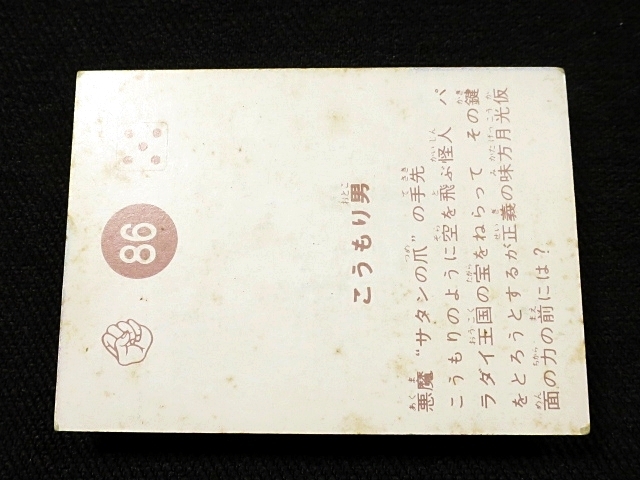 86
こうもり男
悪魔“サタンの爪”の手先
こうもりのように空を飛ぶ怪人 パ
ラダイ王国の宝をねらって その鍵
をとろうとするが正義の味方月光仮
面の力の前には?